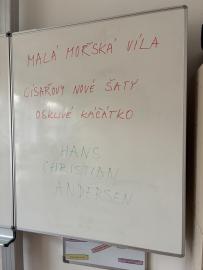 MALÁ MOŘSKÁ VÍLA
CÍSAŘOVY NOVÉ ŠATY
OŠKLIVÉ KÁČÁTKO
HANS
CHRISTIAN
ANDERSEN